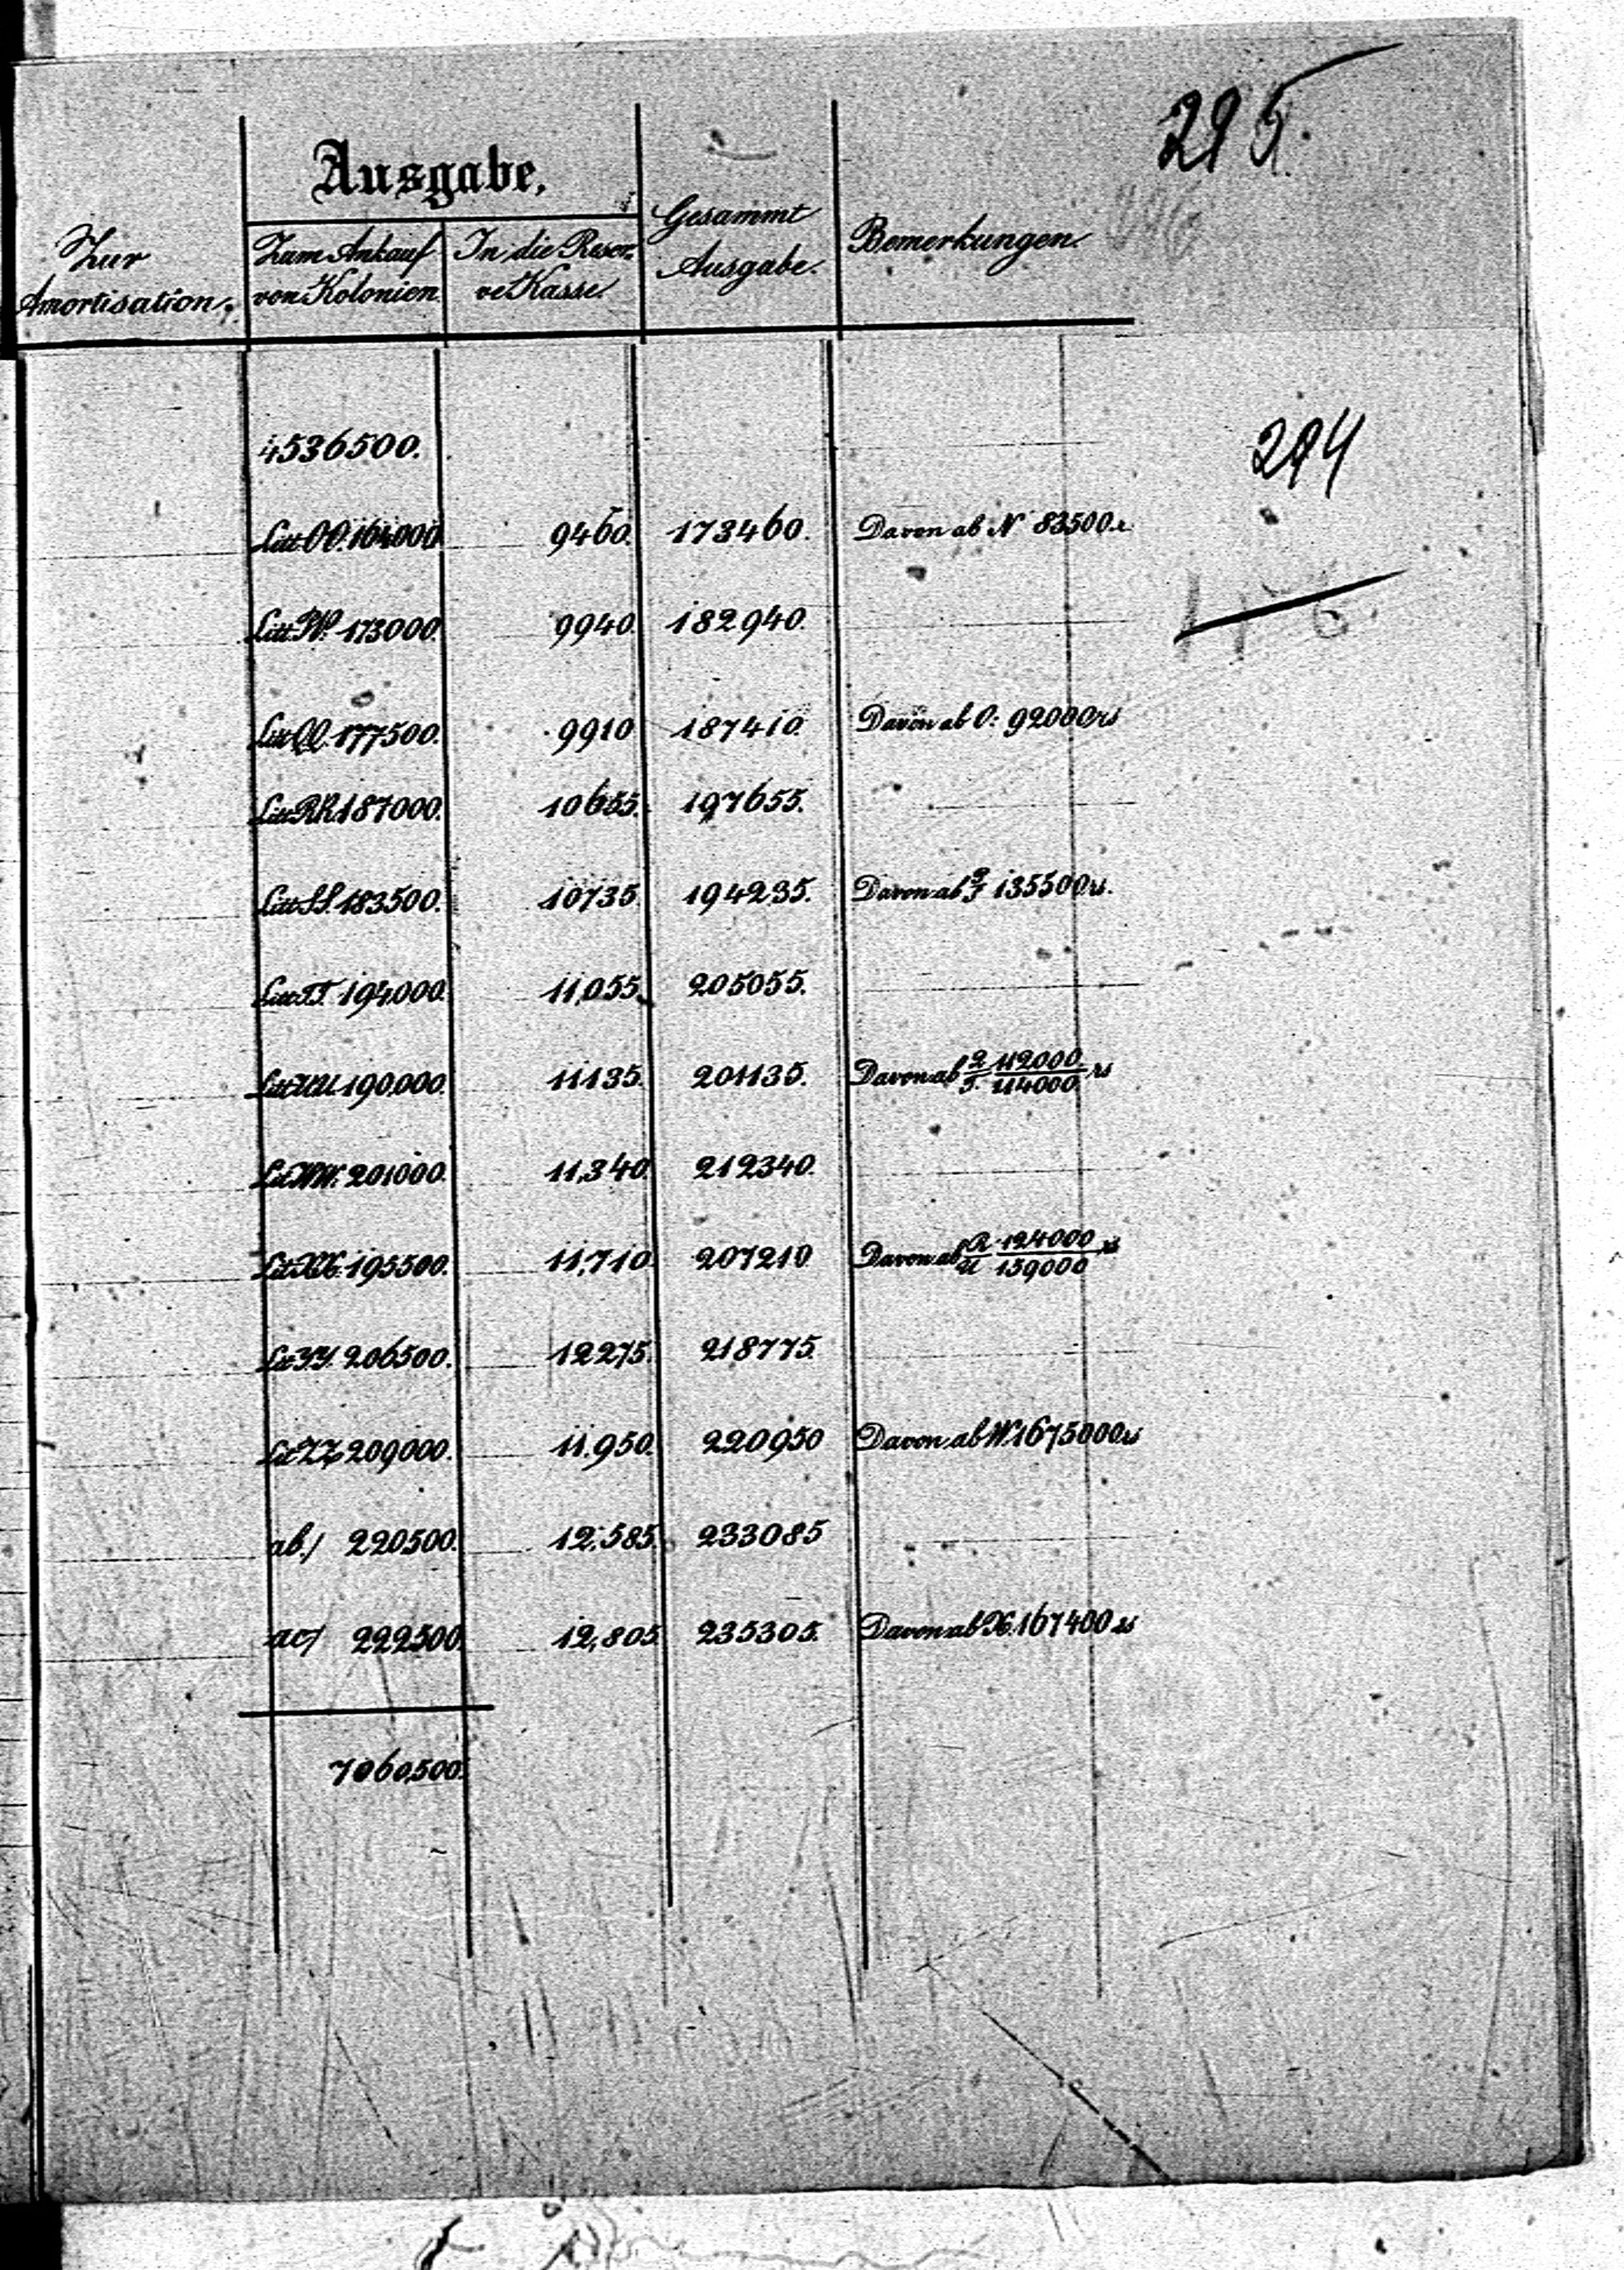 295.
Ausgabe.
Zur Amortisation.
Zum Ankauf von Kolonien.
In die Reser- ve Kasse.
Gesammt Ausgabe.
Bemerkungen.
4536500.
294
Litt OO. 164000. 9460. 173460. Davon ab N 83500 rs
Litt. PP. 173000. 9940. 182940.
Litt QQ. 177500. 9910 187410. Davon ab O: 92000 rs
Litt RR 187000. 10655. 197655.
Litt SS. 183500. 10735. 194235. Davon ab 135500 rs.
Litt TT 194000. 11,055. 205055.
Litt UU. 190,000. 11135. 201135. Davon ab Q 112000 T. 114000 rs
Lit WW. 201000. 11,340. 212340.
Lit XX. 195500. 11,710. 207210 Davon ab R 124000 U 159000 rs
Lit YY. 206500. 12275. 218775.
Lit ZZ 209000. 11,950. 220950 Davon ab W. 1675000 rs
ab./ 220500. 12,585. 233085
ac/ 222500 12,805. 235305. Davon ab X. 167400 rs
7060,500.